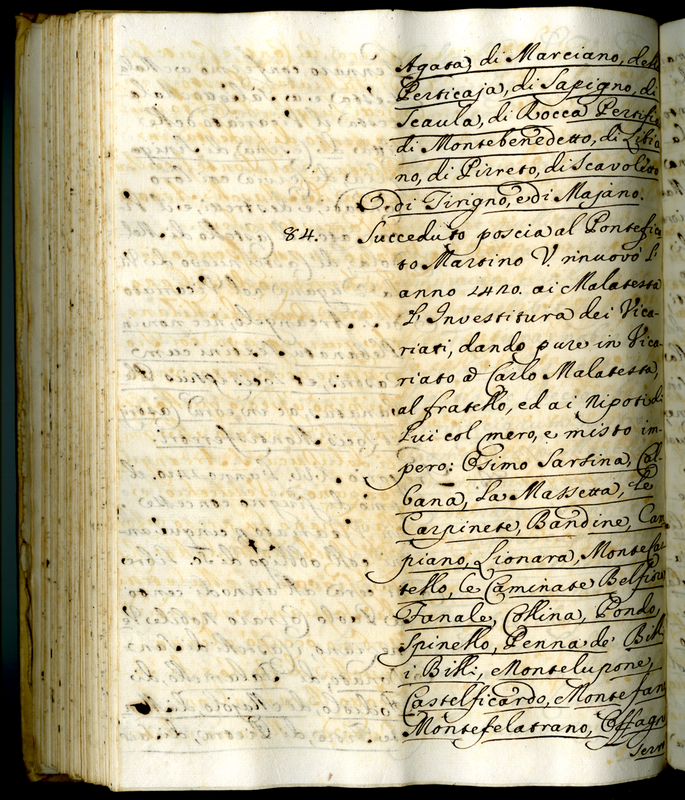 Agata, di Marciano, della
Perticaja, di Sapigno, di
Scaula, di Rocca Pertifi
di Montebenedetto, di Libia
no, di Pirreto, di Scavoleto
di Tirigno, e di Majano.
84. Succeduto poscia al Pontefica
to Martino V. rinuovò l'
anno 1420. ai Malatesta
l'Investitura dei Vica-
riati, dando pure in Vica-
riato a Carlo Malatesta,
al fratello, ed ai nipoti di
Lui col mero, e misto im-
pero: Osimo Sarsina, Cal-
bana, La Massetta, Le
Carpinete, Bandine, Cam
piano, Lionara, Monteca
tello, le Caminate Belfiore
Fanale, Collina, Pondo,
Spinello, Penna de' Billi
i Billi, e Montelupone,
Castelficardo, Montefano
Montefelatrano, Offagna
Serra